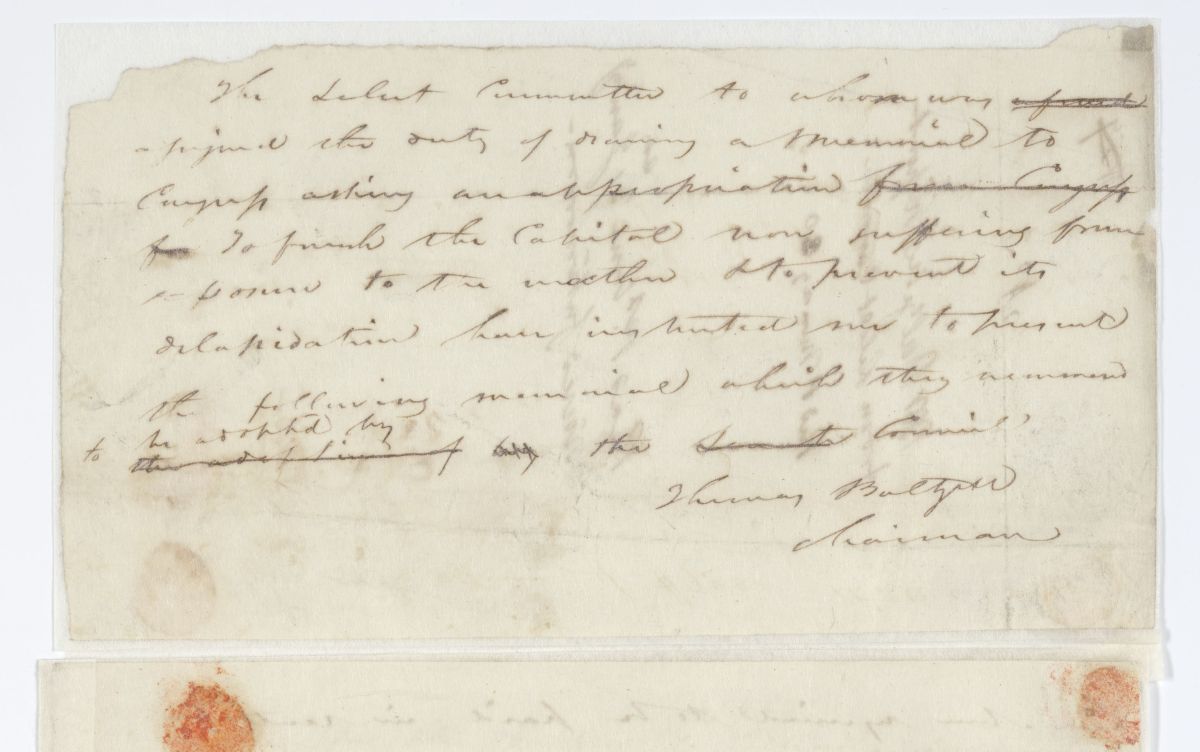 The Select Committee to whom was
assigned the duty of drawing a Memorial to
Congress asking an appropriation from Congress
for To finish the Capitol now suffering from
exposure to the weather & to prevent its
delapidation have instructed me to present
the following memorial which they recommend
to be adopted by
the adoption of by the Senate Council
Thomas Baltzell
Chairman